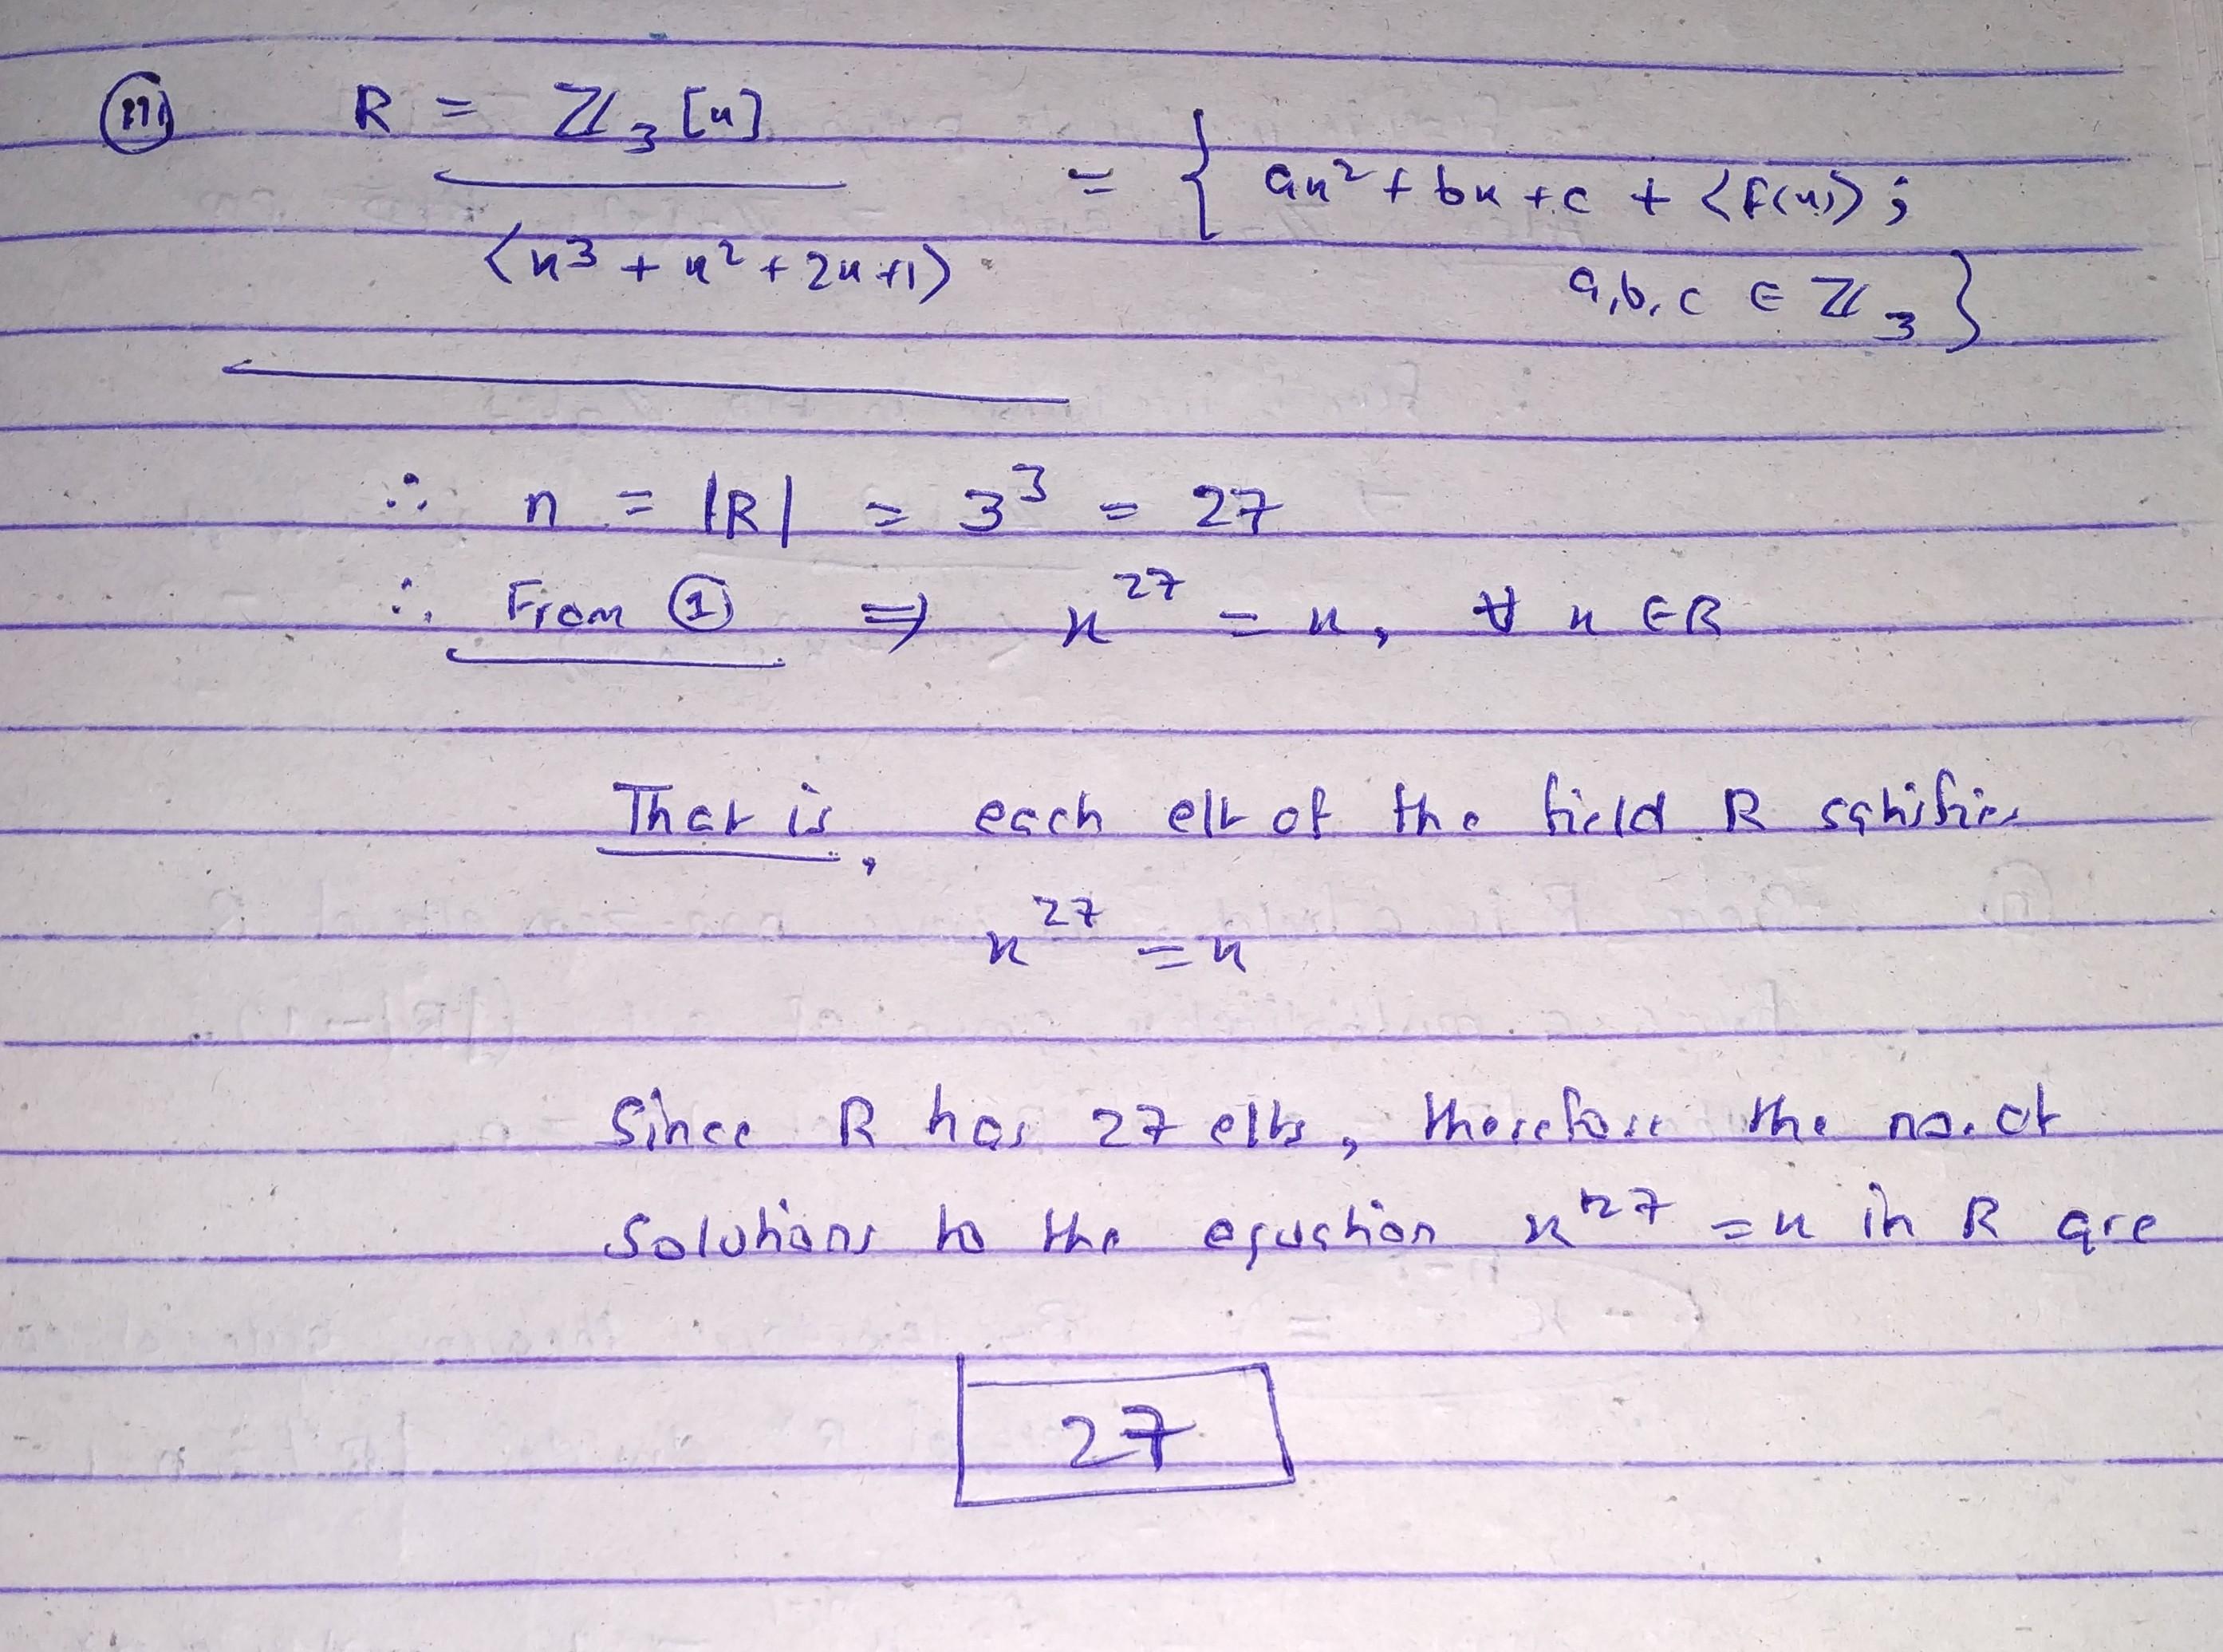 (iii) R = ℤ₃[x] / ⟨x³ + x² + 2x + 1⟩ = { ax² + bx + c + ⟨f(x)⟩ ;
a, b, c ∈ ℤ₃ }
∴ n = |R| = 3³ = 27
∴ From ① ⇒ x²⁷ = x, ∀ x ∈ R
That is, each elt of the field R satisfies
x²⁷ = x
Since R has 27 elts, therefore the no. of
solutions to the equation x²⁷ = x in R are
27